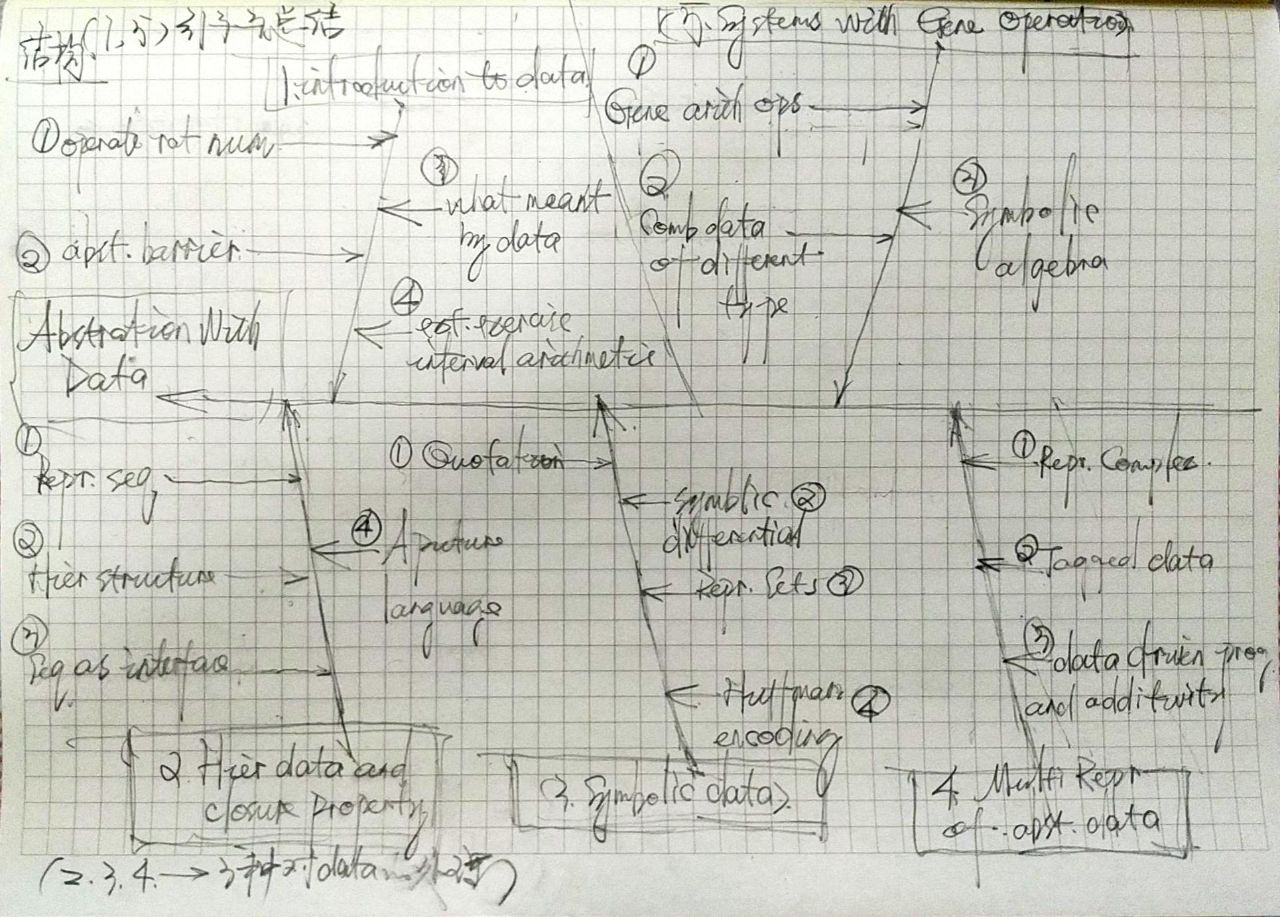 结构(1,5)引子与总结
5. Systems with Gene operation
1. introduction to data
①
Gene arith ops
① operate rat num
③
what meant
by data
②
Comb data
of different
type
③
Symbolic
algebra
② abst. barrier
④
ext. exercise
interval arithmetic
Abstration With
Data
①
Repr. seq
① Quotation
① Repr. Complex.
Symblic ②
differential
②
Hier structure
④ A picture
language
② Tagged data
Repr. Sets ③
③
Seq as interface
③ data driven prog
and additivity
Huffman ④
encoding
2. Hier data and
closure property
3. Symbolic data
4. Multi Repr
of abst. data
(2.3.4. → 3种对data